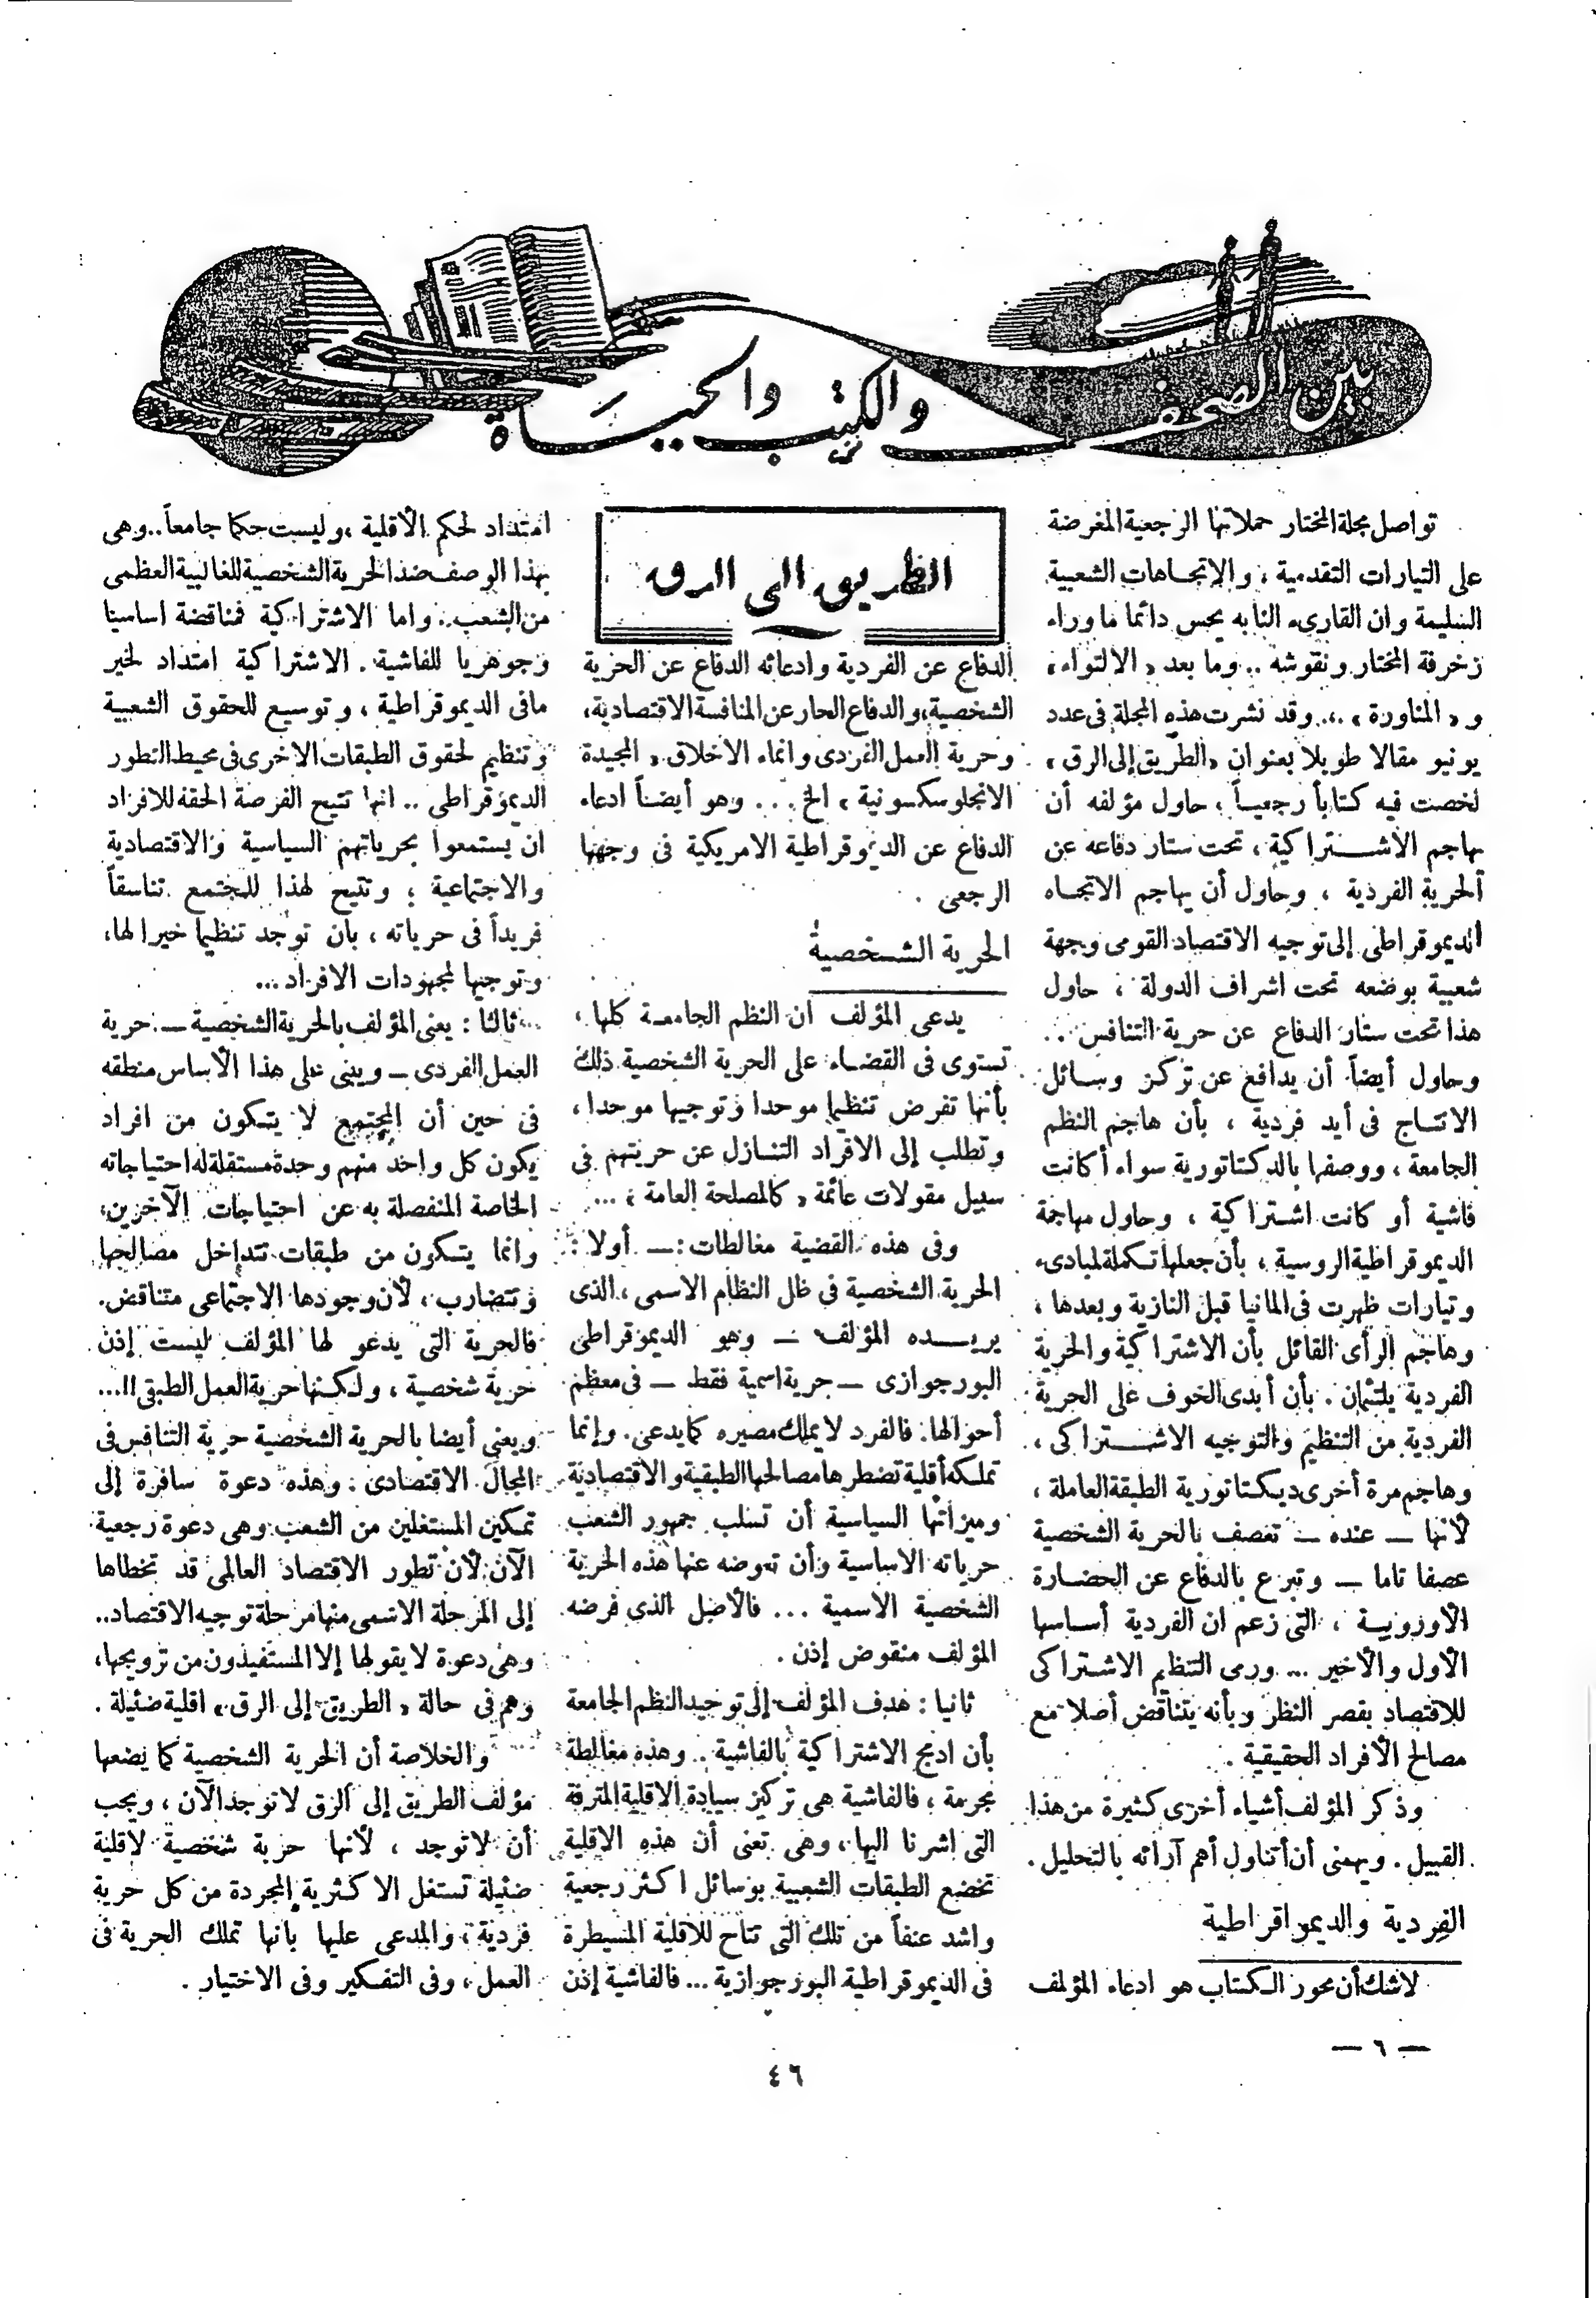 بين الصحف والكتب والحياة
تواصل مجلة المختار حملاتها الرجعية المغرضة
على التيارات التقدمية ، والإتجاهات الشعبية
السليمة وان القارىء النابه يحس دائما ما وراء
زخرفة المختار ونقوشه .. وما بعد « الالتواء »
و « المناورة » ... وقد نشرت هذه المجلة فى عدد
يونيو مقالا طويلا بعنوان «الطريق إلى الرق »
لخصت فيه كتاباً رجعيـاً ؛ حاول مؤلفه أن
يهاجم الاشــتراكية ، تحت ستار دفاعه عن
الحرية الفردية ، وحاول أن يهاجم الاتجـاه
الديموقراطى إلى توجيه الاقتصاد القومى وجهة
شعبية بوضعه تحت اشراف الدولة ؛ حاول
هذا تحت ستار الدفاع عن حرية التنافس ..
وحاول أيضاً أن يدافع عن تركز وسـائل
الانتـاج فى أيد فردية ، بأن هاجم النظم
الجامعة ، ووصفها بالدكتاتورية سواء أكانت
فاشية أو كانت اشـتراكية ، وحاول مهاجمة
الديموقراطية الروسية ، بأن جعلها تكملة لمبادىء
وتيارات ظهرت فى المانيا قبل النازية وبعدها ،
وهاجم الرأى القائل بأن الاشتراكية والحرية
الفردية يلتئمان . بأن أبدى الخوف على الحرية
الفردية من التنظيم والتوجيه الاشــتراكى ،
وهاجم مرة أخرى ديكتاتورية الطبقة العاملة ،
لأنها — عنده — تعصف بالحرية الشخصية
عصفا تاما — وتبرع بالدفاع عن الحضـارة
الأوروبيـة ، التى زعم ان الفردية أسـاسها
الأول والأخير ... ورمى التنظيم الاشـتراكى
للاقتصاد بقصر النظر وبأنه يتناقض أصلا مع
مصالح الأفراد الحقيقية .
وذكر المؤلف أشياء أخرى كثيرة من هذا
القبيل . ويهمنى أن أتناول أهم آرائه بالتحليل .
الفردية والديمواقراطية
لاشك أن محور الكتاب هو ادعاء المؤلف
الطريق الى الرق
الدفاع عن الفردية وادعائه الدفاع عن الحرية
الشخصية، والدفاع الحار عن المنافسة الاقتصادية،
وحرية العمل الفردى وانماء الاخلاق « المجيدة
الانجلوسكسونية » الخ ... وهو أيضاً ادعاء
الدفاع عن الديموقراطية الامريكية فى وجهها
الرجعى .
الحرية الشـخصية
يدعى المؤلف ان النظم الجامعـة كلها ،
تستوى فى القضـاء على الحرية الشخصية ذلك
بأنها تفرض تنظيما موحدا وتوجيها موحدا ،
وتطلب إلى الافراد التنـازل عن حريتهم فى
سبيل مقولات عائمة « كالمصلحة العامة » ...
وفى هذه القضية مغالطات : — أولا :
الحرية الشخصية فى ظل النظام الاسمى ، الذى
يريــده المؤلف — وهو الديموقراطى
البورجوازى — حرية اسمية فقط — فى معظم
أحوالها . فالفرد لا يملك مصيره كما يدعى . وإنما
تملكه أقلية تضطرها مصالحها الطبقية والاقتصادية
وميزاتها السياسية أن تسلب جمهور الشعب
حرياته الاساسية وأن تعوضه عنها هذه الحرية
الشخصية الاسمية ... فالأصل الذى فرضه
المؤلف منقوض إذن .
ثانيا : هدف المؤلف إلى توحيد النظم الجامعة
بأن ادمج الاشتراكية بالفاشية .. وهذه مغالطة
مجرمة ، فالفاشية هى تركيز سيادة الاقلية المترفة
التى اشرنا اليها ، وهى تعنى أن هذه الاقلية
تخضع الطبقات الشعبية بوسائل اكثر رجعية
واشد عنفاً من تلك التى تتاح للاقلية المسيطرة
فى الديموقراطية البورجوازية ... فالفاشية إذن
امتداد لحكم الأقلية ، وليست حكما جامعاً .. وهى
بهذا الوصف ضد الحرية الشخصية للغالبية العظمى
من الشعب .. واما الاشتراكية فمناقضة اساسيا
وجوهريا للفاشية . الاشتراكية امتداد لخير
مافى الديموقراطية ، وتوسيع للحقوق الشعبية
وتنظيم لحقوق الطبقات الاخرى فى محيط التطور
الديموقراطى .. انها تتيح الفرصة الحقه للافراد
ان يستمعوا بحرياتهم السياسية والاقتصادية
والاجتماعية ؛ وتتيح لهذا المجتمع تناسقاً
فريداً فى حرياته ، بأن توجد تنظيما خيرا لها ،
وتوجيها لمجهودات الافراد ...
ثالثا : يعنى المؤلف بالحرية الشخصية — حرية
العمل الفردى — ويبنى على هذا الأساس منطقه
فى حين أن المجتمع لا يتكون من افراد
يكون كل واحد منهم وحدة مستقلة له احتياجاته
الخاصة المنفصلة به عن احتياجات الآخرين ،
وانما يتكون من طبقات تتداخل مصالحها
وتتضارب ، لأن وجودها الاجتماعى متناقض .
فالحرية التى يدعو لها المؤلف ليست إذن
حرية شخصية ، ولكنها حرية العمل الطبقى !! ...
ويعنى أيضا بالحرية الشخصية حرية التنافس فى
المجال الاقتصادى : وهذه دعوة سافرة إلى
تمكين المستغلين من الشعب وهى دعوة رجعية
الآن لأن تطور الاقتصاد العالمى قد تخطاها
إلى المرحلة الاسمى منها مرحلة توجيه الاقتصاد ..
وهى دعوة لا يقولها إلا المستفيدون من ترويجها ،
وهم فى حالة « الطريق إلى الرق » اقلية ضئيلة .
والخلاصة أن الحرية الشخصية كما يضعها
مؤلف الطريق إلى الرق لا توجد الآن ، ويجب
أن لا توجد ، لأنها حرية شخصية لاقلية
ضئيلة تستغل الاكثرية المجردة من كل حرية
فردية ، والمدعى عليها بانها تملك الحرية فى
العمل ، وفى التفكير وفى الاختيار .
— ٦ —
٤٦